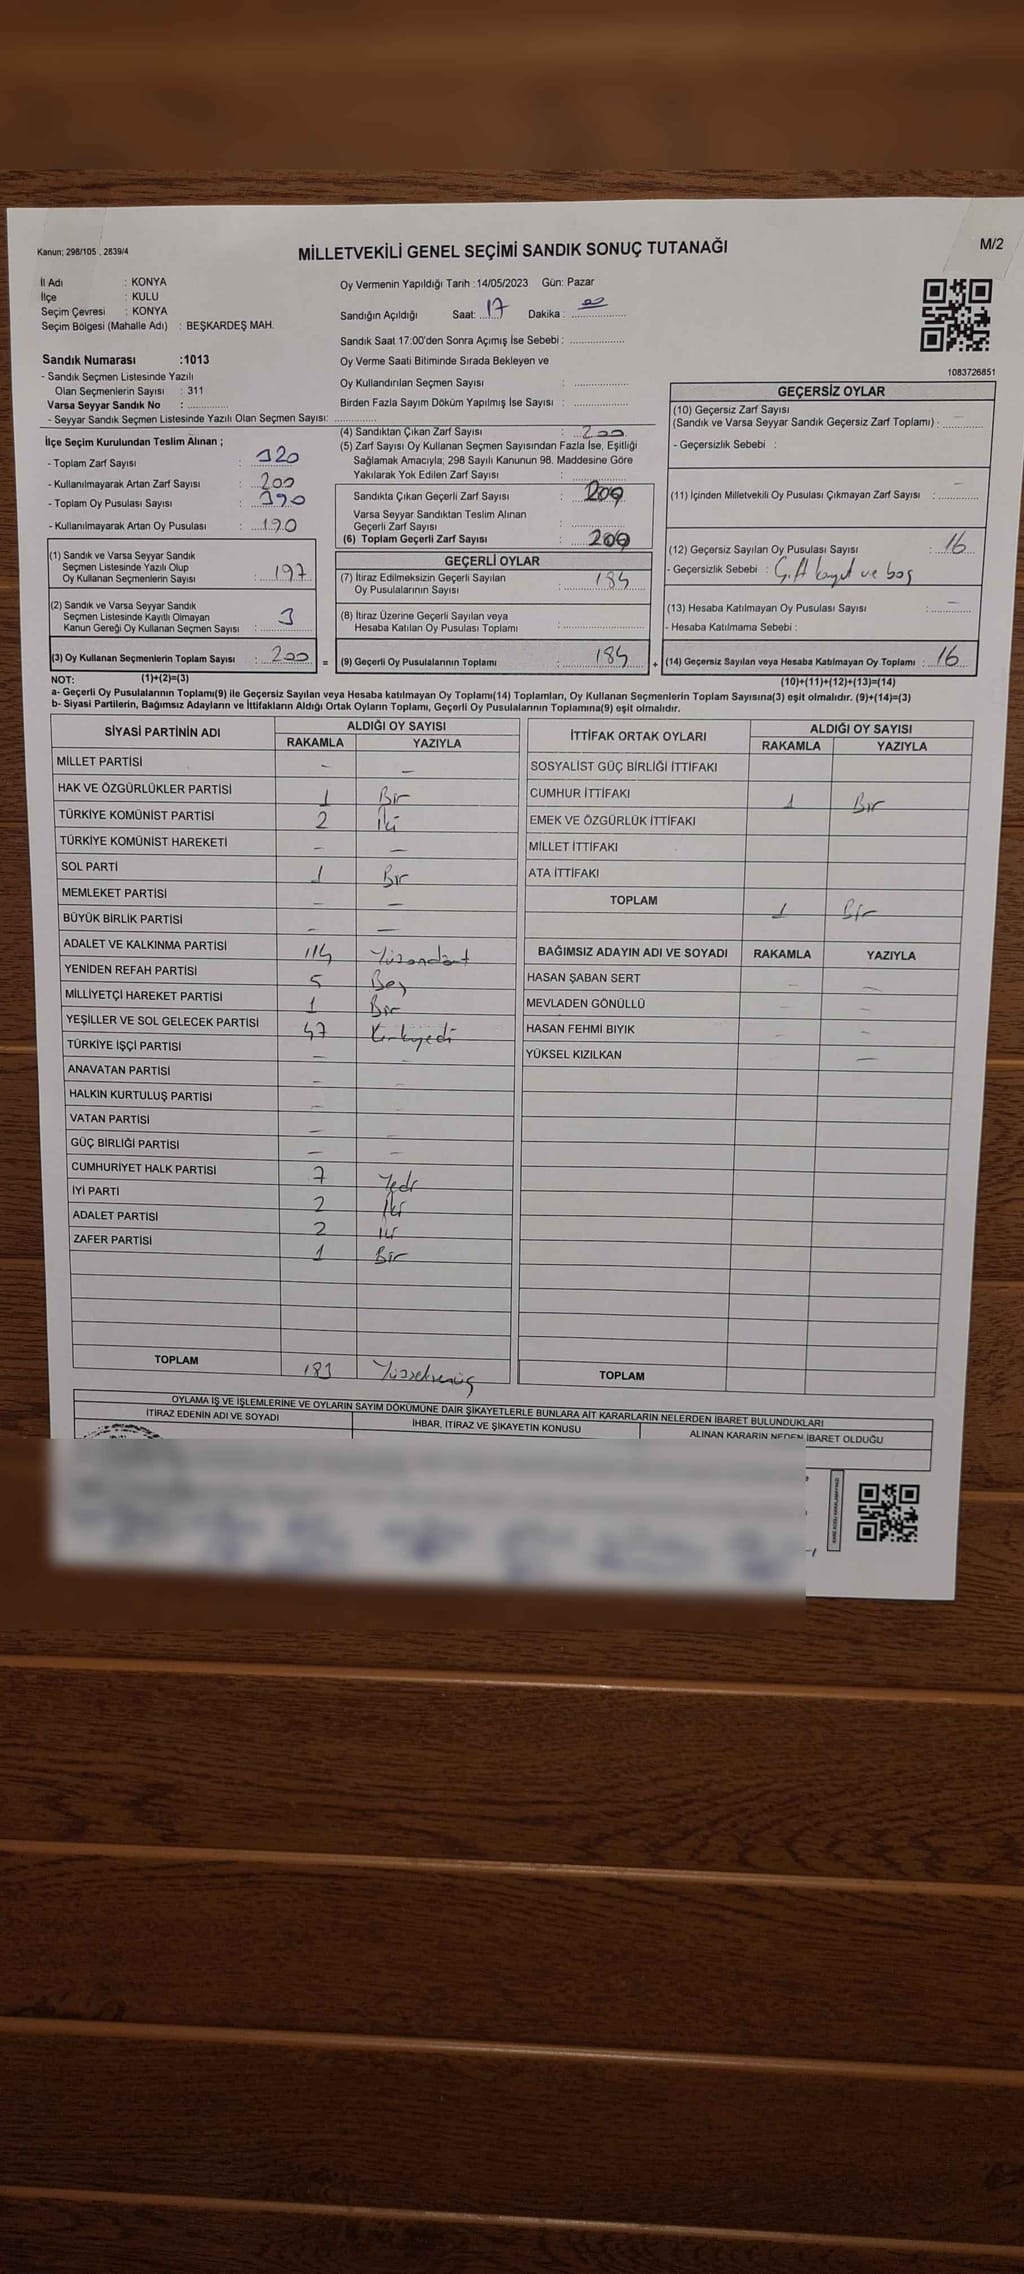 Kanun; 298/105 , 2839/4
MİLLETVEKİLİ GENEL SEÇİMİ SANDIK SONUÇ TUTANAĞI
M/2
İl Adı : KONYA
İlçe : KULU
Seçim Çevresi : KONYA
Seçim Bölgesi (Mahalle Adı) : BEŞKARDEŞ MAH.
Sandık Numarası :1013
- Sandık Seçmen Listesinde Yazılı
Olan Seçmenlerin Sayısı : 311
Varsa Seyyar Sandık No : ..............
- Seyyar Sandık Seçmen Listesinde Yazılı Olan Seçmen Sayısı: ..............
Oy Vermenin Yapıldığı Tarih :14/05/2023 Gün: Pazar
Sandığın Açıldığı Saat: 17 Dakika : 00
Sandık Saat 17:00'den Sonra Açımış İse Sebebi : ..............
Oy Verme Saati Bitiminde Sırada Bekleyen ve
Oy Kullandırılan Seçmen Sayısı : ..............
Birden Fazla Sayım Döküm Yapılmış İse Sayısı : ..............
1083726851
İlçe Seçim Kurulundan Teslim Alınan ;
- Toplam Zarf Sayısı :
- Kullanılmayarak Artan Zarf Sayısı : 200
- Toplam Oy Pusulası Sayısı : 390
- Kullanılmayarak Artan Oy Pusulası : 190
(1) Sandık ve Varsa Seyyar Sandık
Seçmen Listesinde Yazılı Olup
Oy Kullanan Seçmenlerin Sayısı : 197
(2) Sandık ve Varsa Seyyar Sandık
Seçmen Listesinde Kayıtlı Olmayan
Kanun Gereği Oy Kullanan Seçmen Sayısı : 3
(3) Oy Kullanan Seçmenlerin Toplam Sayısı : 200 =
(4) Sandıktan Çıkan Zarf Sayısı : 200
(5) Zarf Sayısı Oy Kullanan Seçmen Sayısından Fazla İse, Eşitliği
Sağlamak Amacıyla; 298 Sayılı Kanunun 98. Maddesine Göre
Yakılarak Yok Edilen Zarf Sayısı : ..............
Sandıkta Çıkan Geçerli Zarf Sayısı : 200
Varsa Seyyar Sandıktan Teslim Alınan
Geçerli Zarf Sayısı : ..............
(6) Toplam Geçerli Zarf Sayısı : 200
GEÇERLİ OYLAR
(7) İtiraz Edilmeksizin Geçerli Sayılan
Oy Pusulalarının Sayısı : 184
(8) İtiraz Üzerine Geçerli Sayılan veya
Hesaba Katılan Oy Pusulası Toplamı : ..............
(9) Geçerli Oy Pusulalarının Toplamı : 184 +
GEÇERSİZ OYLAR
(10) Geçersiz Zarf Sayısı
(Sandık ve Varsa Seyyar Sandık Geçersiz Zarf Toplamı) : -
- Geçersizlik Sebebi :
(11) İçinden Milletvekili Oy Pusulası Çıkmayan Zarf Sayısı : -
(12) Geçersiz Sayılan Oy Pusulası Sayısı : 16
- Geçersizlik Sebebi : Çift kayıt ve boş
(13) Hesaba Katılmayan Oy Pusulası Sayısı : -
- Hesaba Katılmama Sebebi :
(14) Geçersiz Sayılan veya Hesaba Katılmayan Oy Toplamı : 16
NOT: (1)+(2)=(3)
(10)+(11)+(12)+(13)=(14)
a- Geçerli Oy Pusulalarının Toplamı(9) ile Geçersiz Sayılan veya Hesaba katılmayan Oy Toplamı(14) Toplamları, Oy Kullanan Seçmenlerin Toplam Sayısına(3) eşit olmalıdır. (9)+(14)=(3)
b- Siyasi Partilerin, Bağımsız Adayların ve İttifakların Aldığı Ortak Oyların Toplamı, Geçerli Oy Pusulalarının Toplamına(9) eşit olmalıdır.
SİYASİ PARTİNİN ADI ALDIĞI OY SAYISI
RAKAMLA YAZIYLA
MİLLET PARTİSİ - -
HAK VE ÖZGÜRLÜKLER PARTİSİ 1 Bir
TÜRKİYE KOMÜNİST PARTİSİ 2 İki
TÜRKİYE KOMÜNİST HAREKETİ - -
SOL PARTİ 1 Bir
MEMLEKET PARTİSİ - -
BÜYÜK BİRLİK PARTİSİ - -
ADALET VE KALKINMA PARTİSİ 114 Yüzondört
YENİDEN REFAH PARTİSİ 5 Beş
MİLLİYETÇİ HAREKET PARTİSİ 1 Bir
YEŞİLLER VE SOL GELECEK PARTİSİ 47 Kırkyedi
TÜRKİYE İŞÇİ PARTİSİ - -
ANAVATAN PARTİSİ - -
HALKIN KURTULUŞ PARTİSİ - -
VATAN PARTİSİ - -
GÜÇ BİRLİĞİ PARTİSİ - -
CUMHURİYET HALK PARTİSİ 7 Yedi
İYİ PARTİ 2 İki
ADALET PARTİSİ 2 İki
ZAFER PARTİSİ 1 Bir
TOPLAM 183 Yüzseksenüç
İTTİFAK ORTAK OYLARI ALDIĞI OY SAYISI
RAKAMLA YAZIYLA
SOSYALİST GÜÇ BİRLİĞİ İTTİFAKI
CUMHUR İTTİFAKI 1 Bir
EMEK VE ÖZGÜRLÜK İTTİFAKI
MİLLET İTTİFAKI
ATA İTTİFAKI
TOPLAM 1 Bir
BAĞIMSIZ ADAYIN ADI VE SOYADI RAKAMLA YAZIYLA
HASAN ŞABAN SERT - -
MEVLADEN GÖNÜLLÜ - -
HASAN FEHMİ BIYIK - -
YÜKSEL KIZILKAN - -
TOPLAM
OYLAMA İŞ VE İŞLEMLERİNE VE OYLARIN SAYIM DÖKÜMÜNE DAİR ŞİKAYETLERLE BUNLARA AİT KARARLARIN NELERDEN İBARET BULUNDUKLARI
İTİRAZ EDENİN ADI VE SOYADI İHBAR, İTİRAZ VE ŞİKAYETİN KONUSU ALINAN KARARIN NEDEN İBARET OLDUĞU